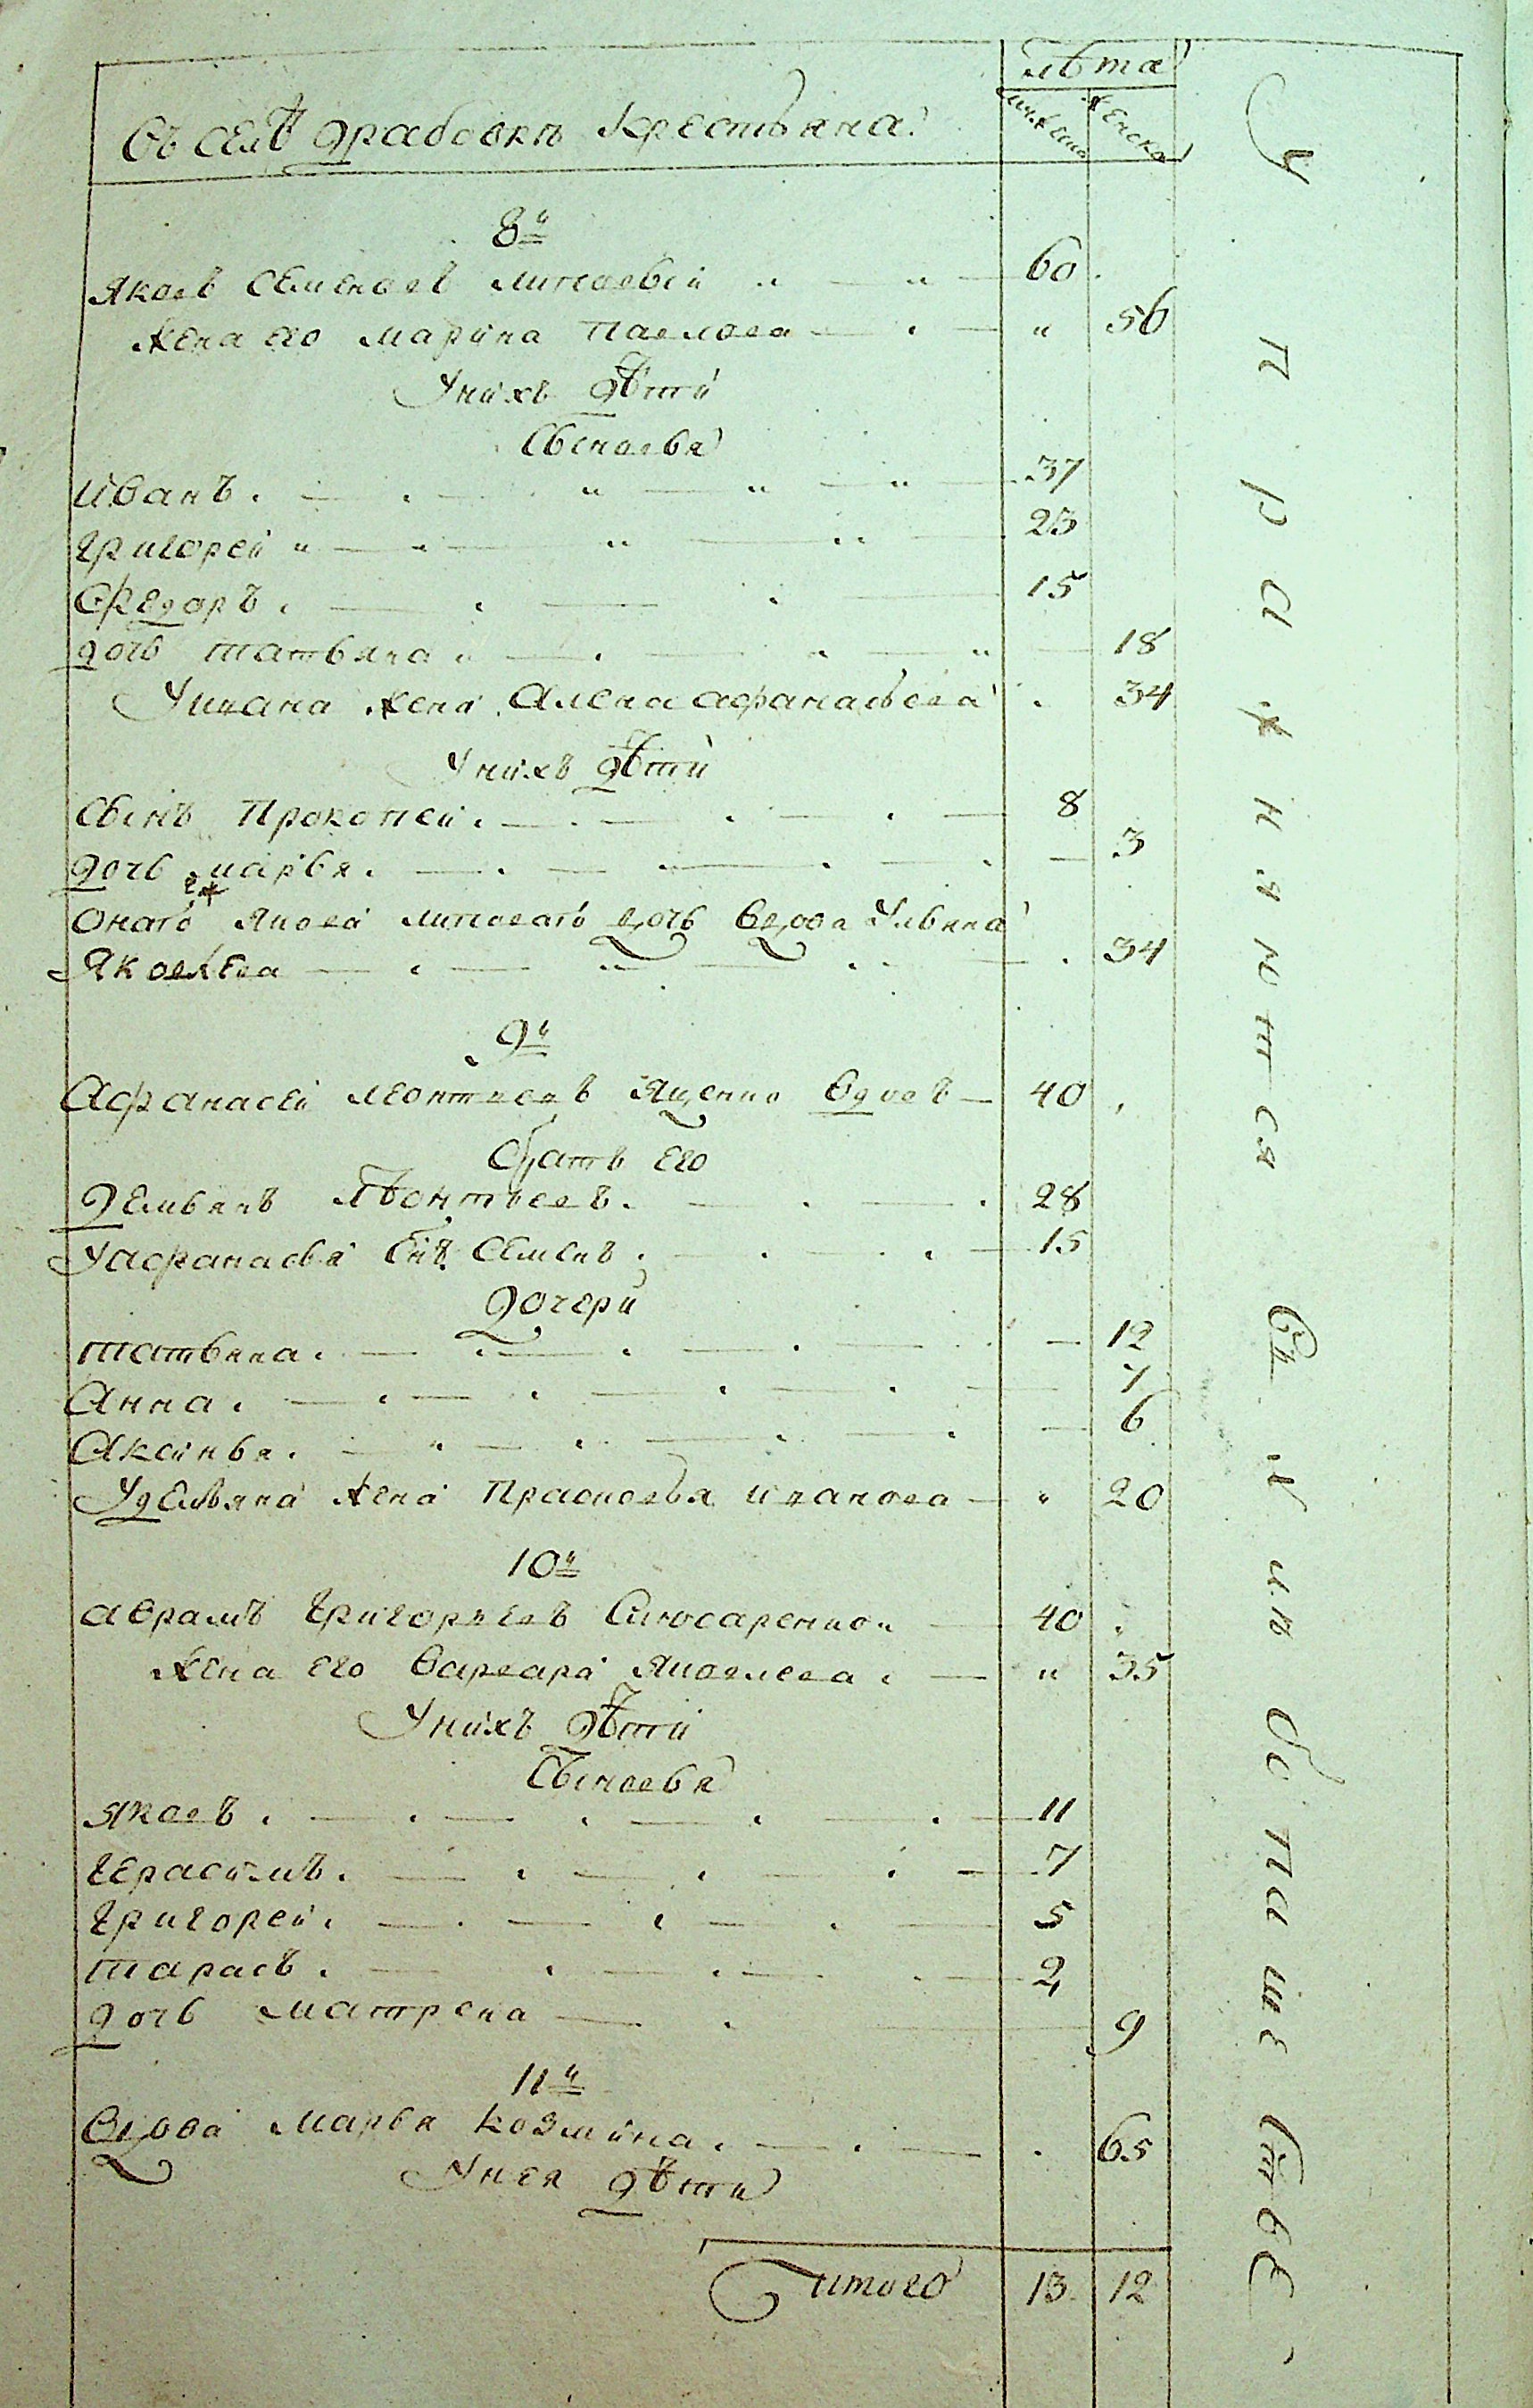 лѣта
Въ селѣ драбовкѣ крестьяна
мужеска
женска
8й
Яковъ Семеновъ литовскій 60
жена его марина Павлова 56
У нихъ дѣти
Сыновья
иванъ. 37
григорей 23
Федоръ. 15
дочь татьяна 18
У ивана жена Алена афанасьева 34
У нихъ дѣти
Сынъ Прокопей. 8
дочь марья. 3
онаго Якова литовского дочь вдова Ульяна
Яковлева 34
9й
Афанасей леонтьевъ Яценко вдовъ 40
братъ его
демьянъ лѣонтьевъ. 28
У афанасья Снъ Семенъ. 15
дочери
татьяна. 12
Анна. 7
Аксинья. 6
У демьяна жена Прасковья иванова 20
10й
аврамъ григорьевъ Слюсаренко 40
жена его варвара Яковлева 35
У нихъ дѣти
Сыновья
яковъ. 11
герасимъ. 7
григорей. 5
тарасъ. 2
дочь матрена 9
11й
вдова марья козмина. 65
У нея дѣти
65
итого 13 12